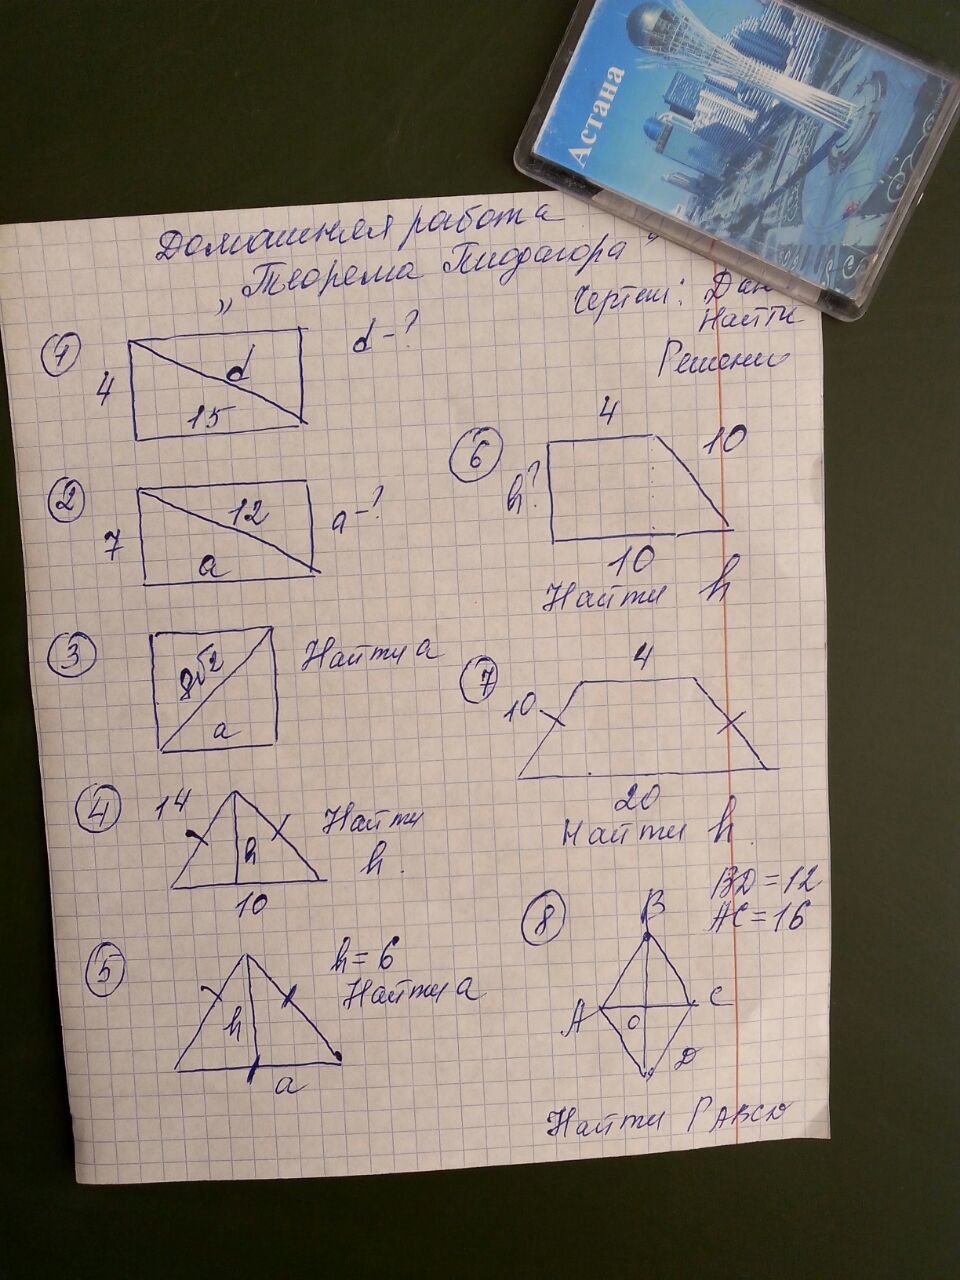 Астана
Домашняя работа
„Теорема Пифагора"
Чертеж: Дан
Найти
Решени
1
d-?
4
d
15
2
12
a-?
7
a
3
8√2
Найти a
a
4
14
Найти
h.
h
10
5
h=6
Найти a
h
a
6
4
10
h?
10
Найти h
7
4
10
20
Найти h.
8
BD=12
AC=16
B
A
O
C
D
Найти PABCD